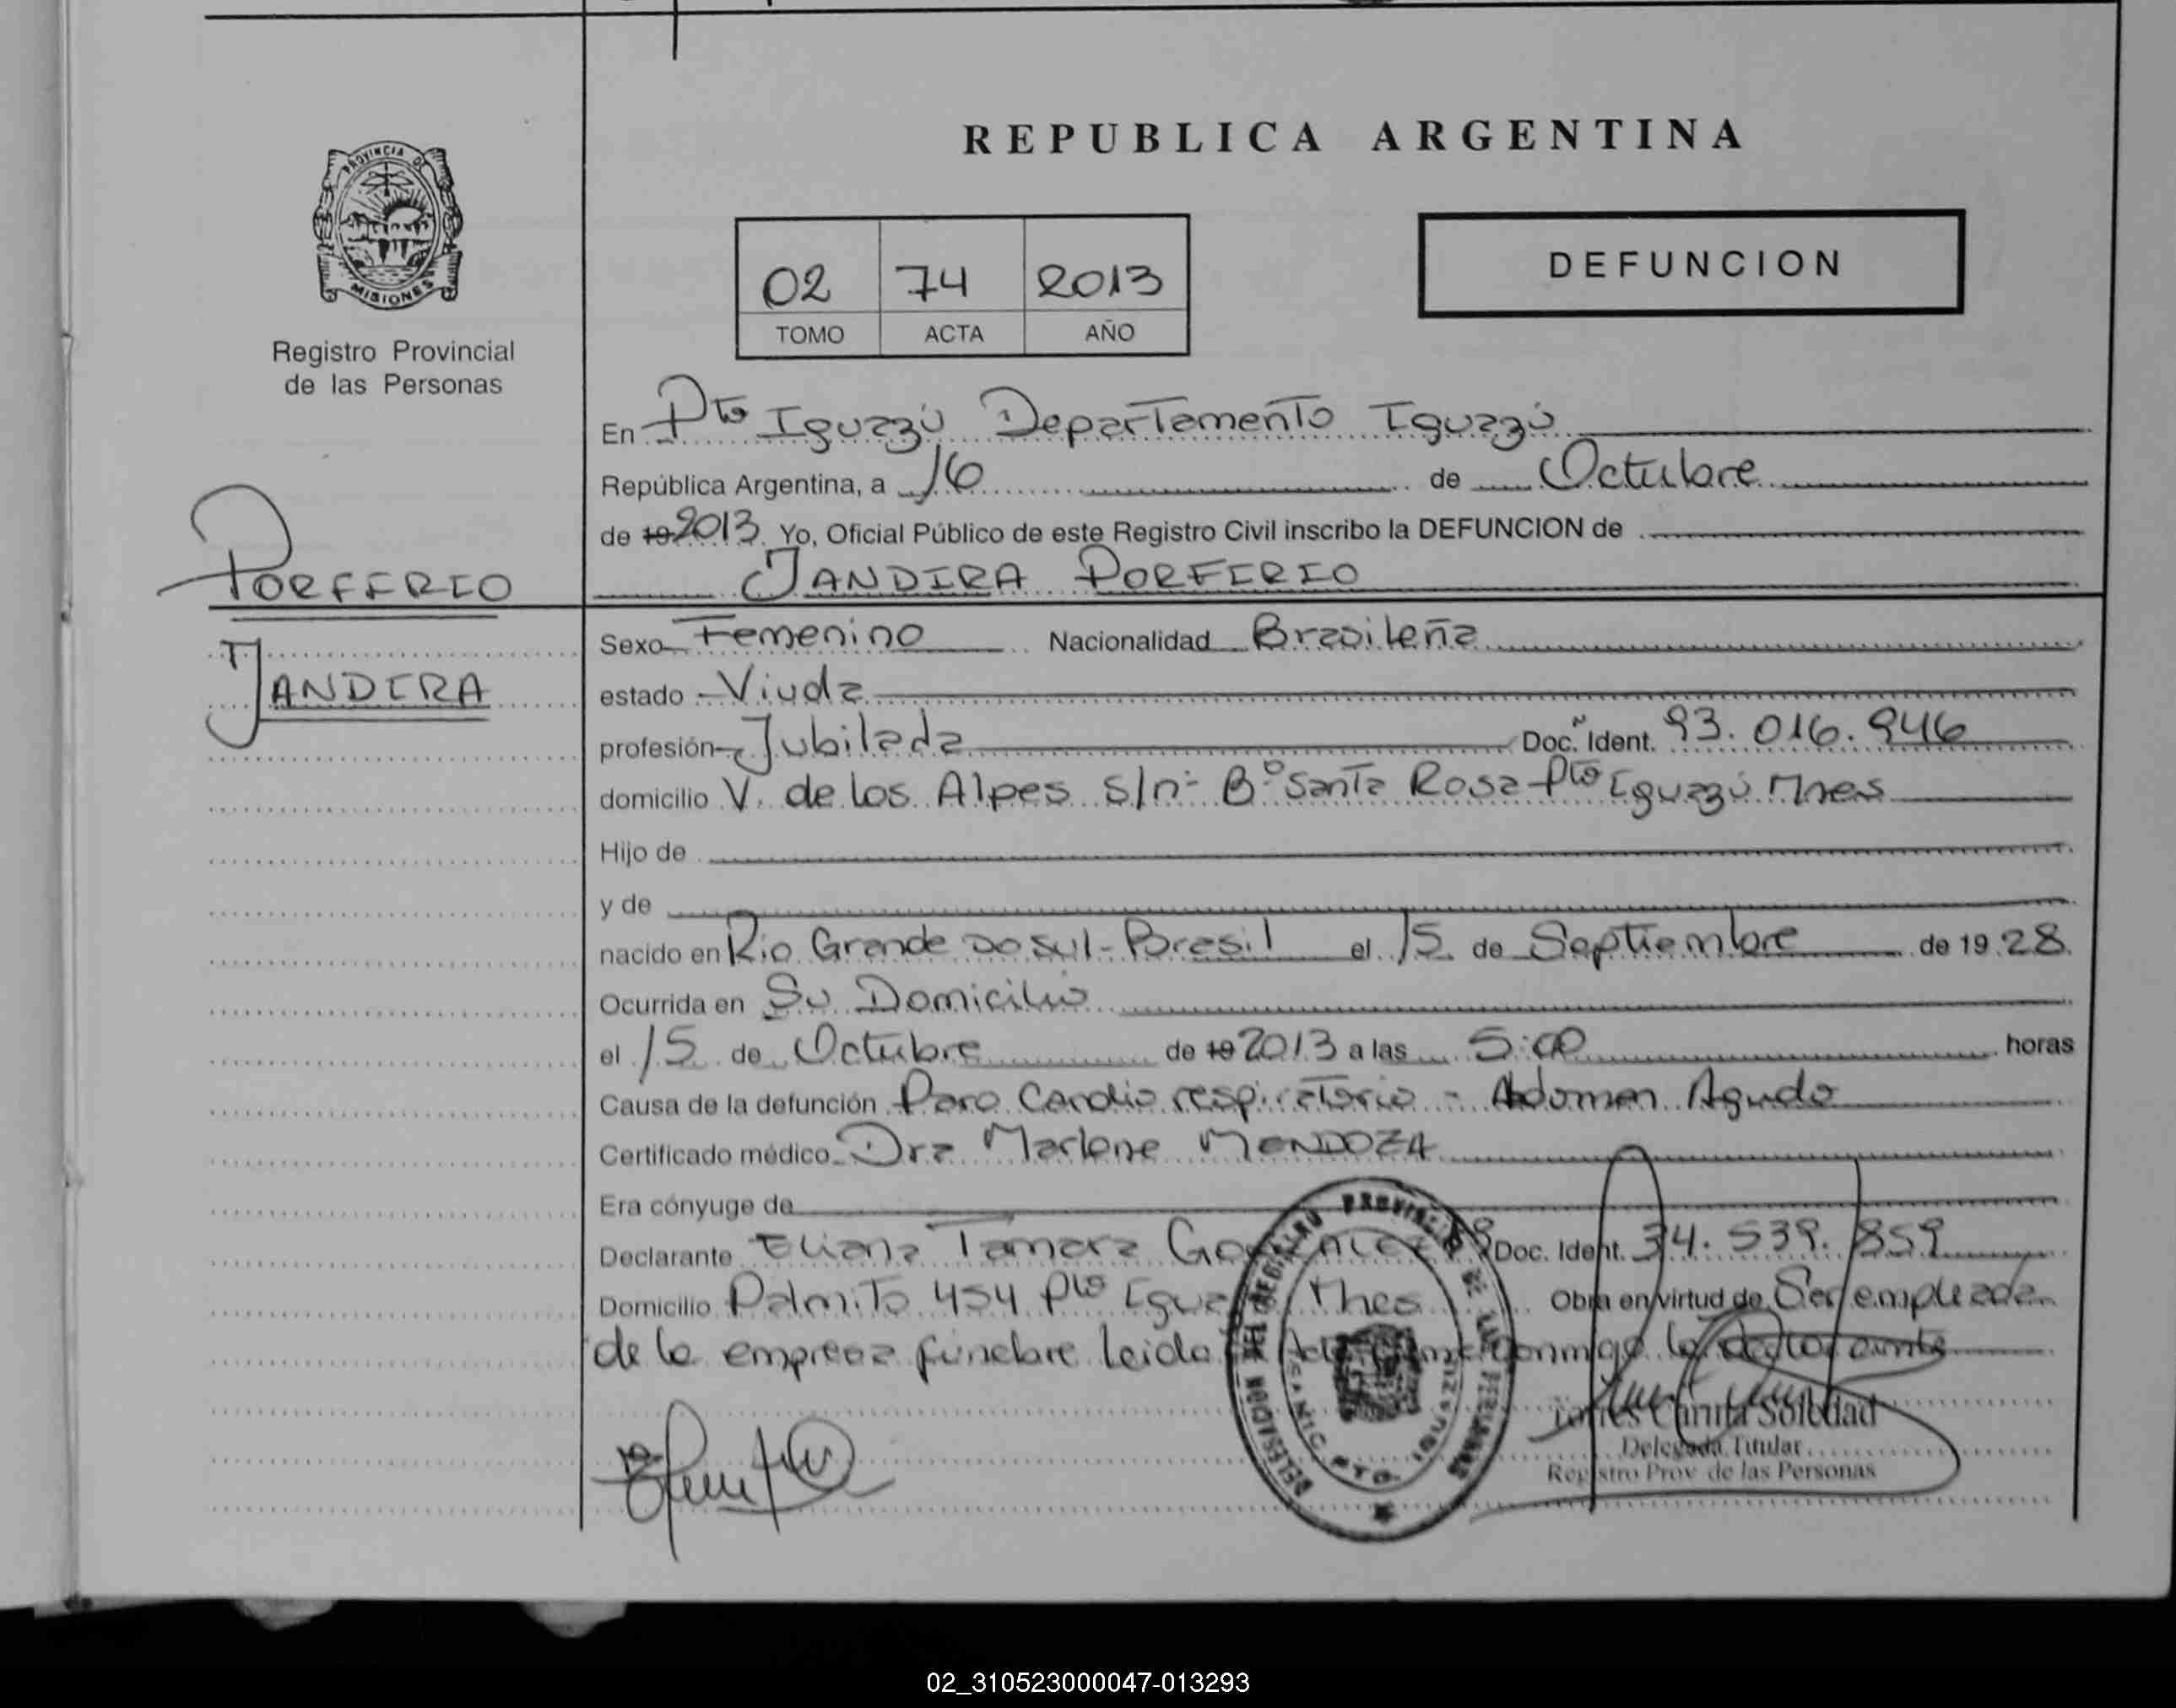 PROVINCIA DE
MISIONES
Registro Provincial
de las Personas
REPUBLICA ARGENTINA
02 74 2013
TOMO ACTA AÑO
DEFUNCION
En Pto Iguazú Departamento Iguazú
República Argentina, a 16 de Octubre
de 19 2013. Yo, Oficial Público de este Registro Civil inscribo la DEFUNCION de
JANDIRA PORFIRIO
PORFIRIO
JANDIRA
Sexo Femenino Nacionalidad Brasileña
estado Viuda
profesión Jubilada Doc. Ident. 93.016.946
domicilio V. de los Alpes S/nº Bº Santa Rosa Pto Iguazú Mnes
Hijo de
y de
nacido en Rio Grande Do Sul - Brasil el 15 de Septiembre de 19 28
Ocurrida en Su Domicilio
el 15 de Octubre de 19 2013 a las 5:00 horas
Causa de la defunción Paro Cardio respiratorio - Abdomen Agudo
Certificado médico Dra Marlene MENDOZA
Era cónyuge de
Declarante Eliana Tamara Doc. Ident. 34.539.859
Domicilio Palmito 454 Pto Iguazú Mnes Obra en virtud de Ser empleada
de la empresa fúnebre Leida el acta firma conmigo la declarante
Torres Carina Soledad
Delegada Titular
Registro Prov. de las Personas
DELEGACION DEL REGISTRO PROVINCIAL DE LAS PERSONAS
PTO. IGUAZU
02_310523000047-013293